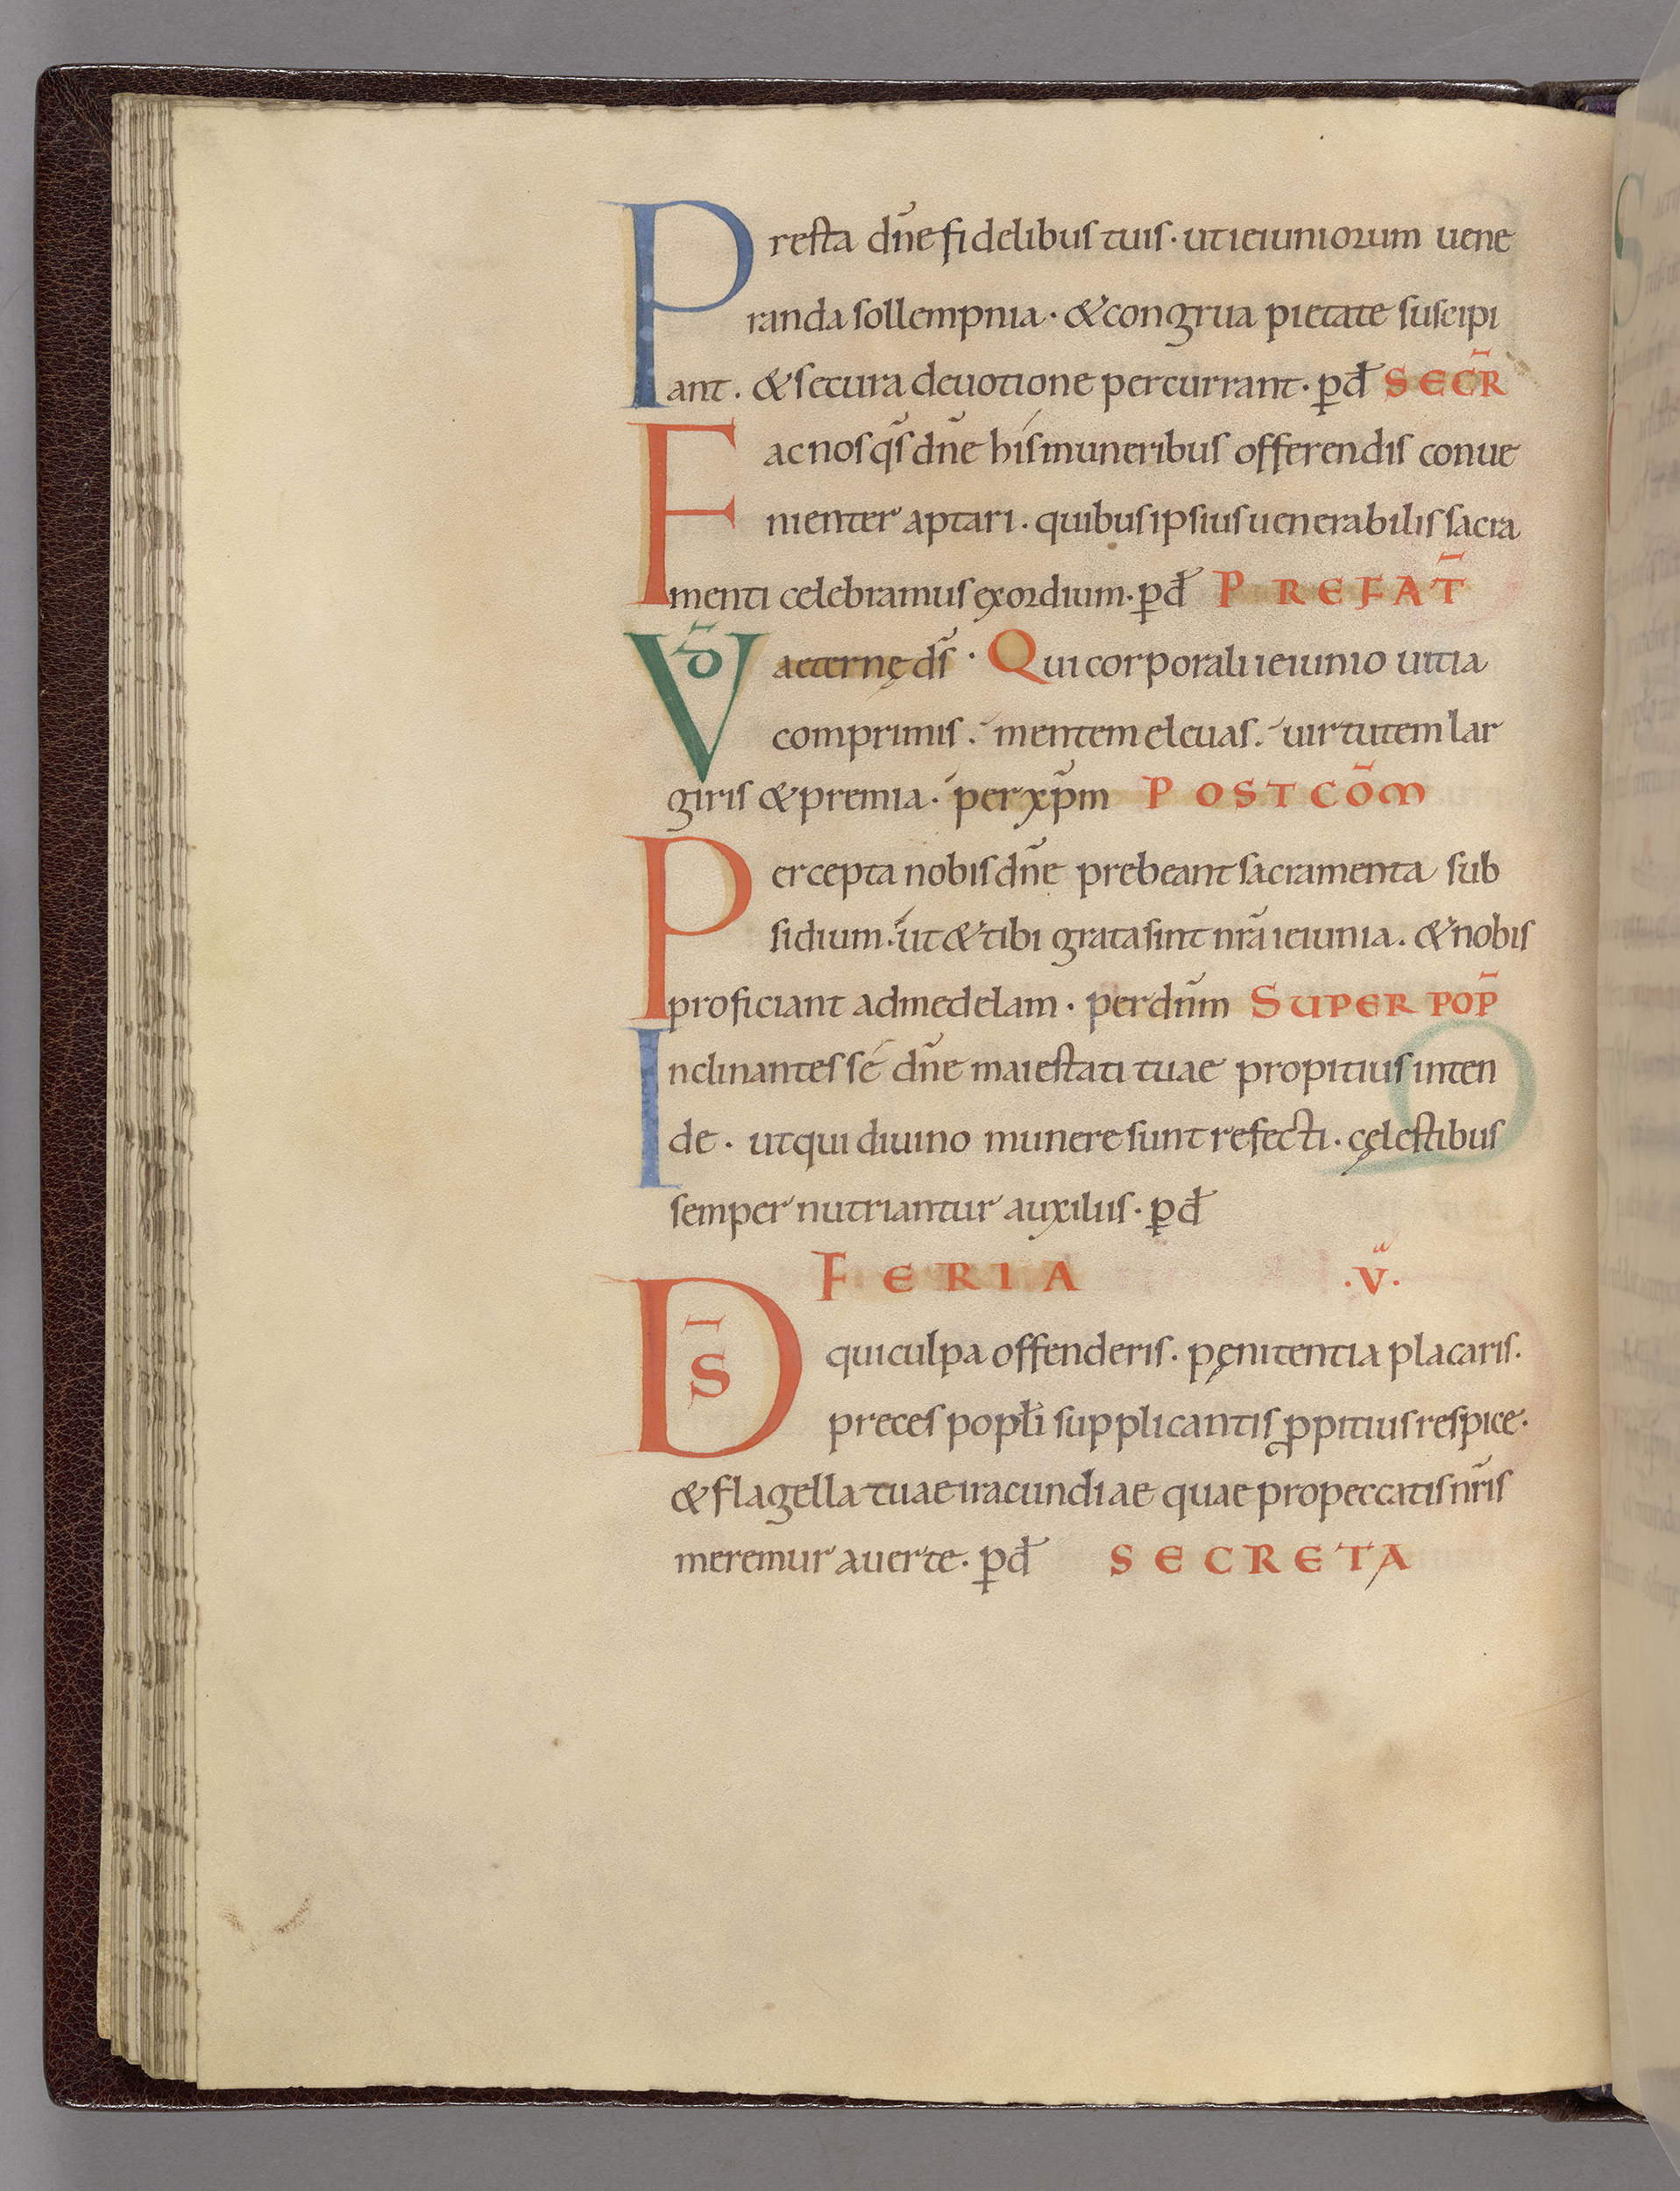 Presta dn̄e fidelibus tuis · ut ieiuniorum uene
randa sollempnia · & congrua pietate suscipi
ant · & secura deuotione percurrant · p̱ đ SECR̄
Fac nos qs̄ dn̄e his muneribus offerendis conue
nienter aptari · quibus ipsius uenerabilis sacra
menti celebramus exordium · p̱ đ PREFAT̄
VD̄ aeternę ds̄ · Qui corporali ieiunio uitia
comprimis · mentem eleuas · uirtutem lar
giris & premia · per xp̄m POSTCOM̄
Percepta nobis dn̄e prebeant sacramenta sub
sidium · ut & tibi grata sint nr̄a ieiunia · & nobis
proficiant ad medelam · per dn̄m SUPER POP̄
Inclinantes se dn̄e maiestati tuae propitius inten
de · ut qui diuino munere sunt refecti · cęlestibus
semper nutriantur auxiliis · p̱ đ
FERIA ·V·ᵃ
DS̄ qui culpa offenderis · pęnitentia placaris ·
preces popłi supplicantis ꝓpitius respice ·
& flagella tuae iracundiae quae pro peccatis nr̄is
meremur auerte · p̱ đ SECRETA